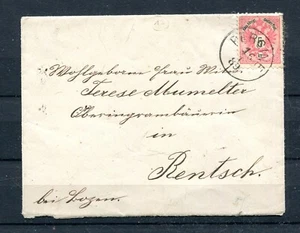 Wohlgeborne Frau Witwe
Terese Mumelter
Oberingrambäuerin
in
Rentsch.
bei Bozen.
89